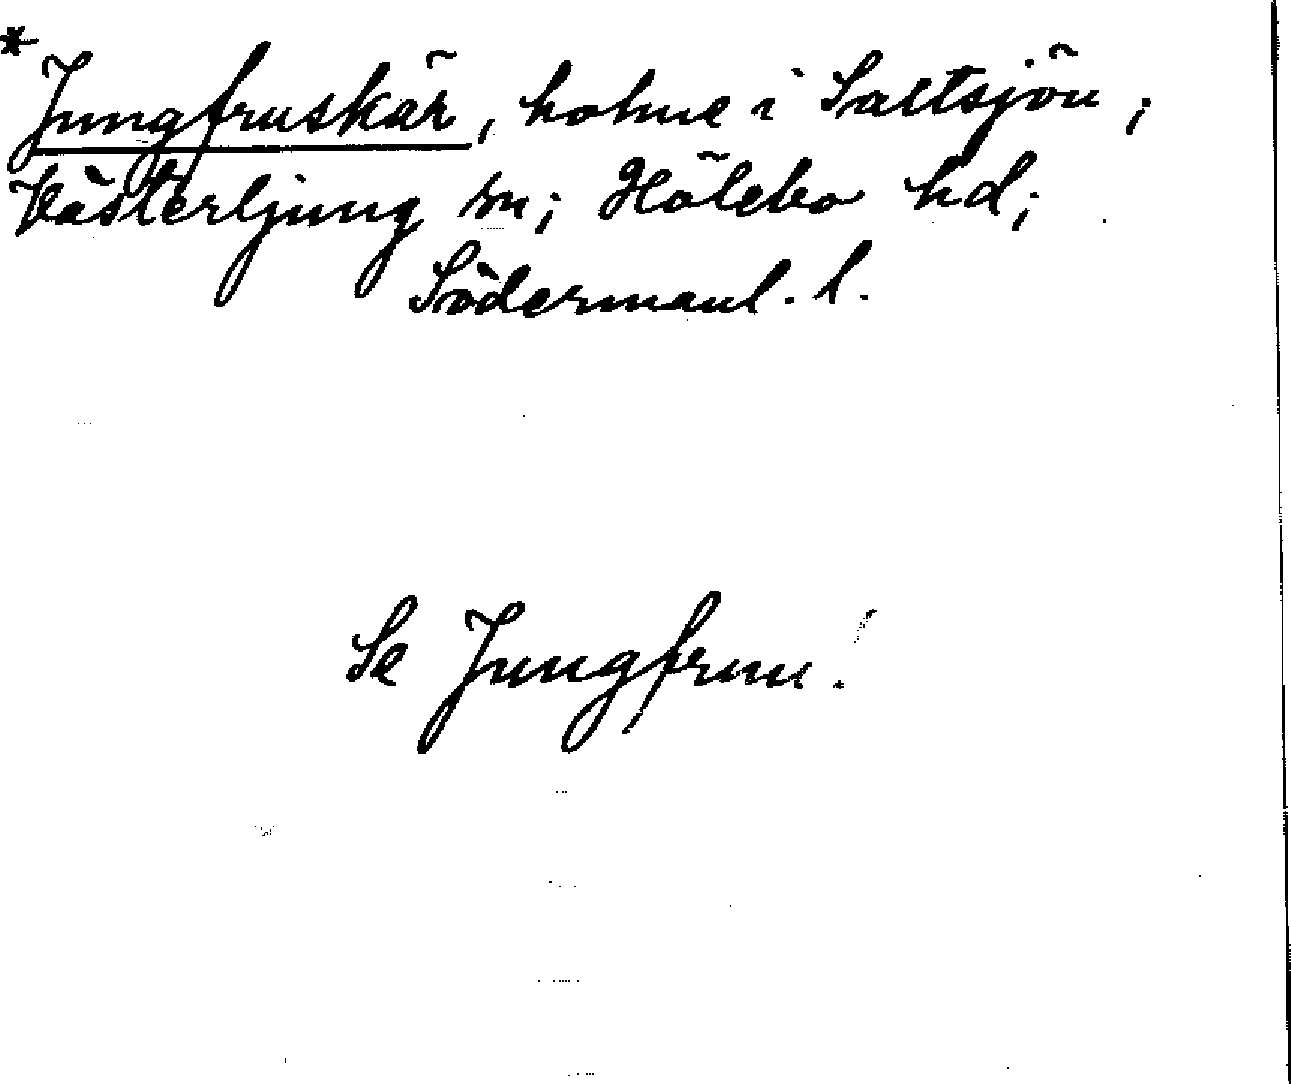 * Jungfruskär, holme i Saltsjön;
Västerljung sn; Hölebo hd;
Södermanl. l.
Se Jungfrun!